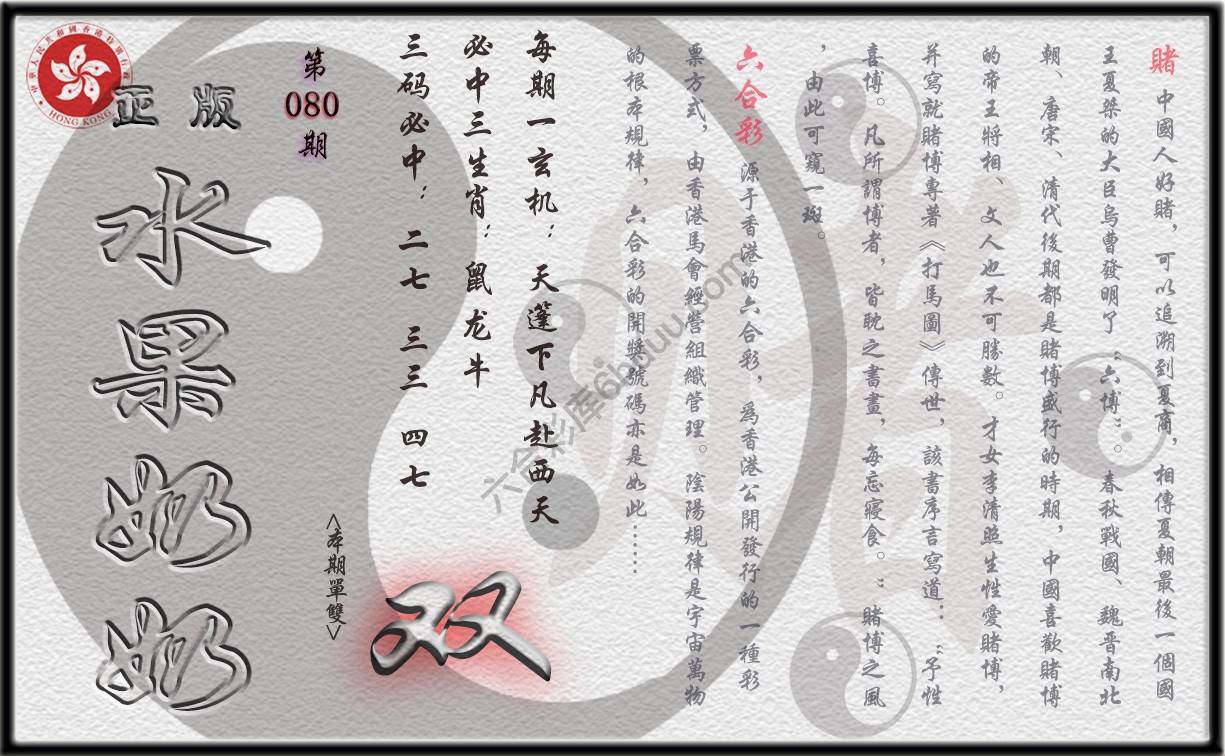 賭 中國人好賭，可以追溯到夏商，相傳夏朝最後一個國
王夏桀的大臣烏曹發明了“六博”。春秋戰國、魏晋南北
朝、唐宋、清代後期都是賭博盛行的時期，中國喜歡賭博
的帝王將相、文人也不可勝數。才女李清照生性愛賭博，
并寫就賭博專著《打馬圖》傳世，該書序言寫道：“予性
喜博。凡所謂博者，皆耽之書畫，每忘寢食。”賭博之風
，由此可窺一斑。
六合彩 源于香港的六合彩，爲香港公開發行的一種彩
票方式，由香港馬會經營組織管理。陰陽規律是宇宙萬物
的根本規律，六合彩的開獎號碼亦是如此……
每期一玄机：天蓬下凡赴西天
必中三生肖：鼠龙牛
三码必中：二七 三三 四七
<本期單雙>
双
第
080
期
正版
水果奶奶
中華人民共和國香港特別行政區
HONG KONG
六合彩库6hduu.com